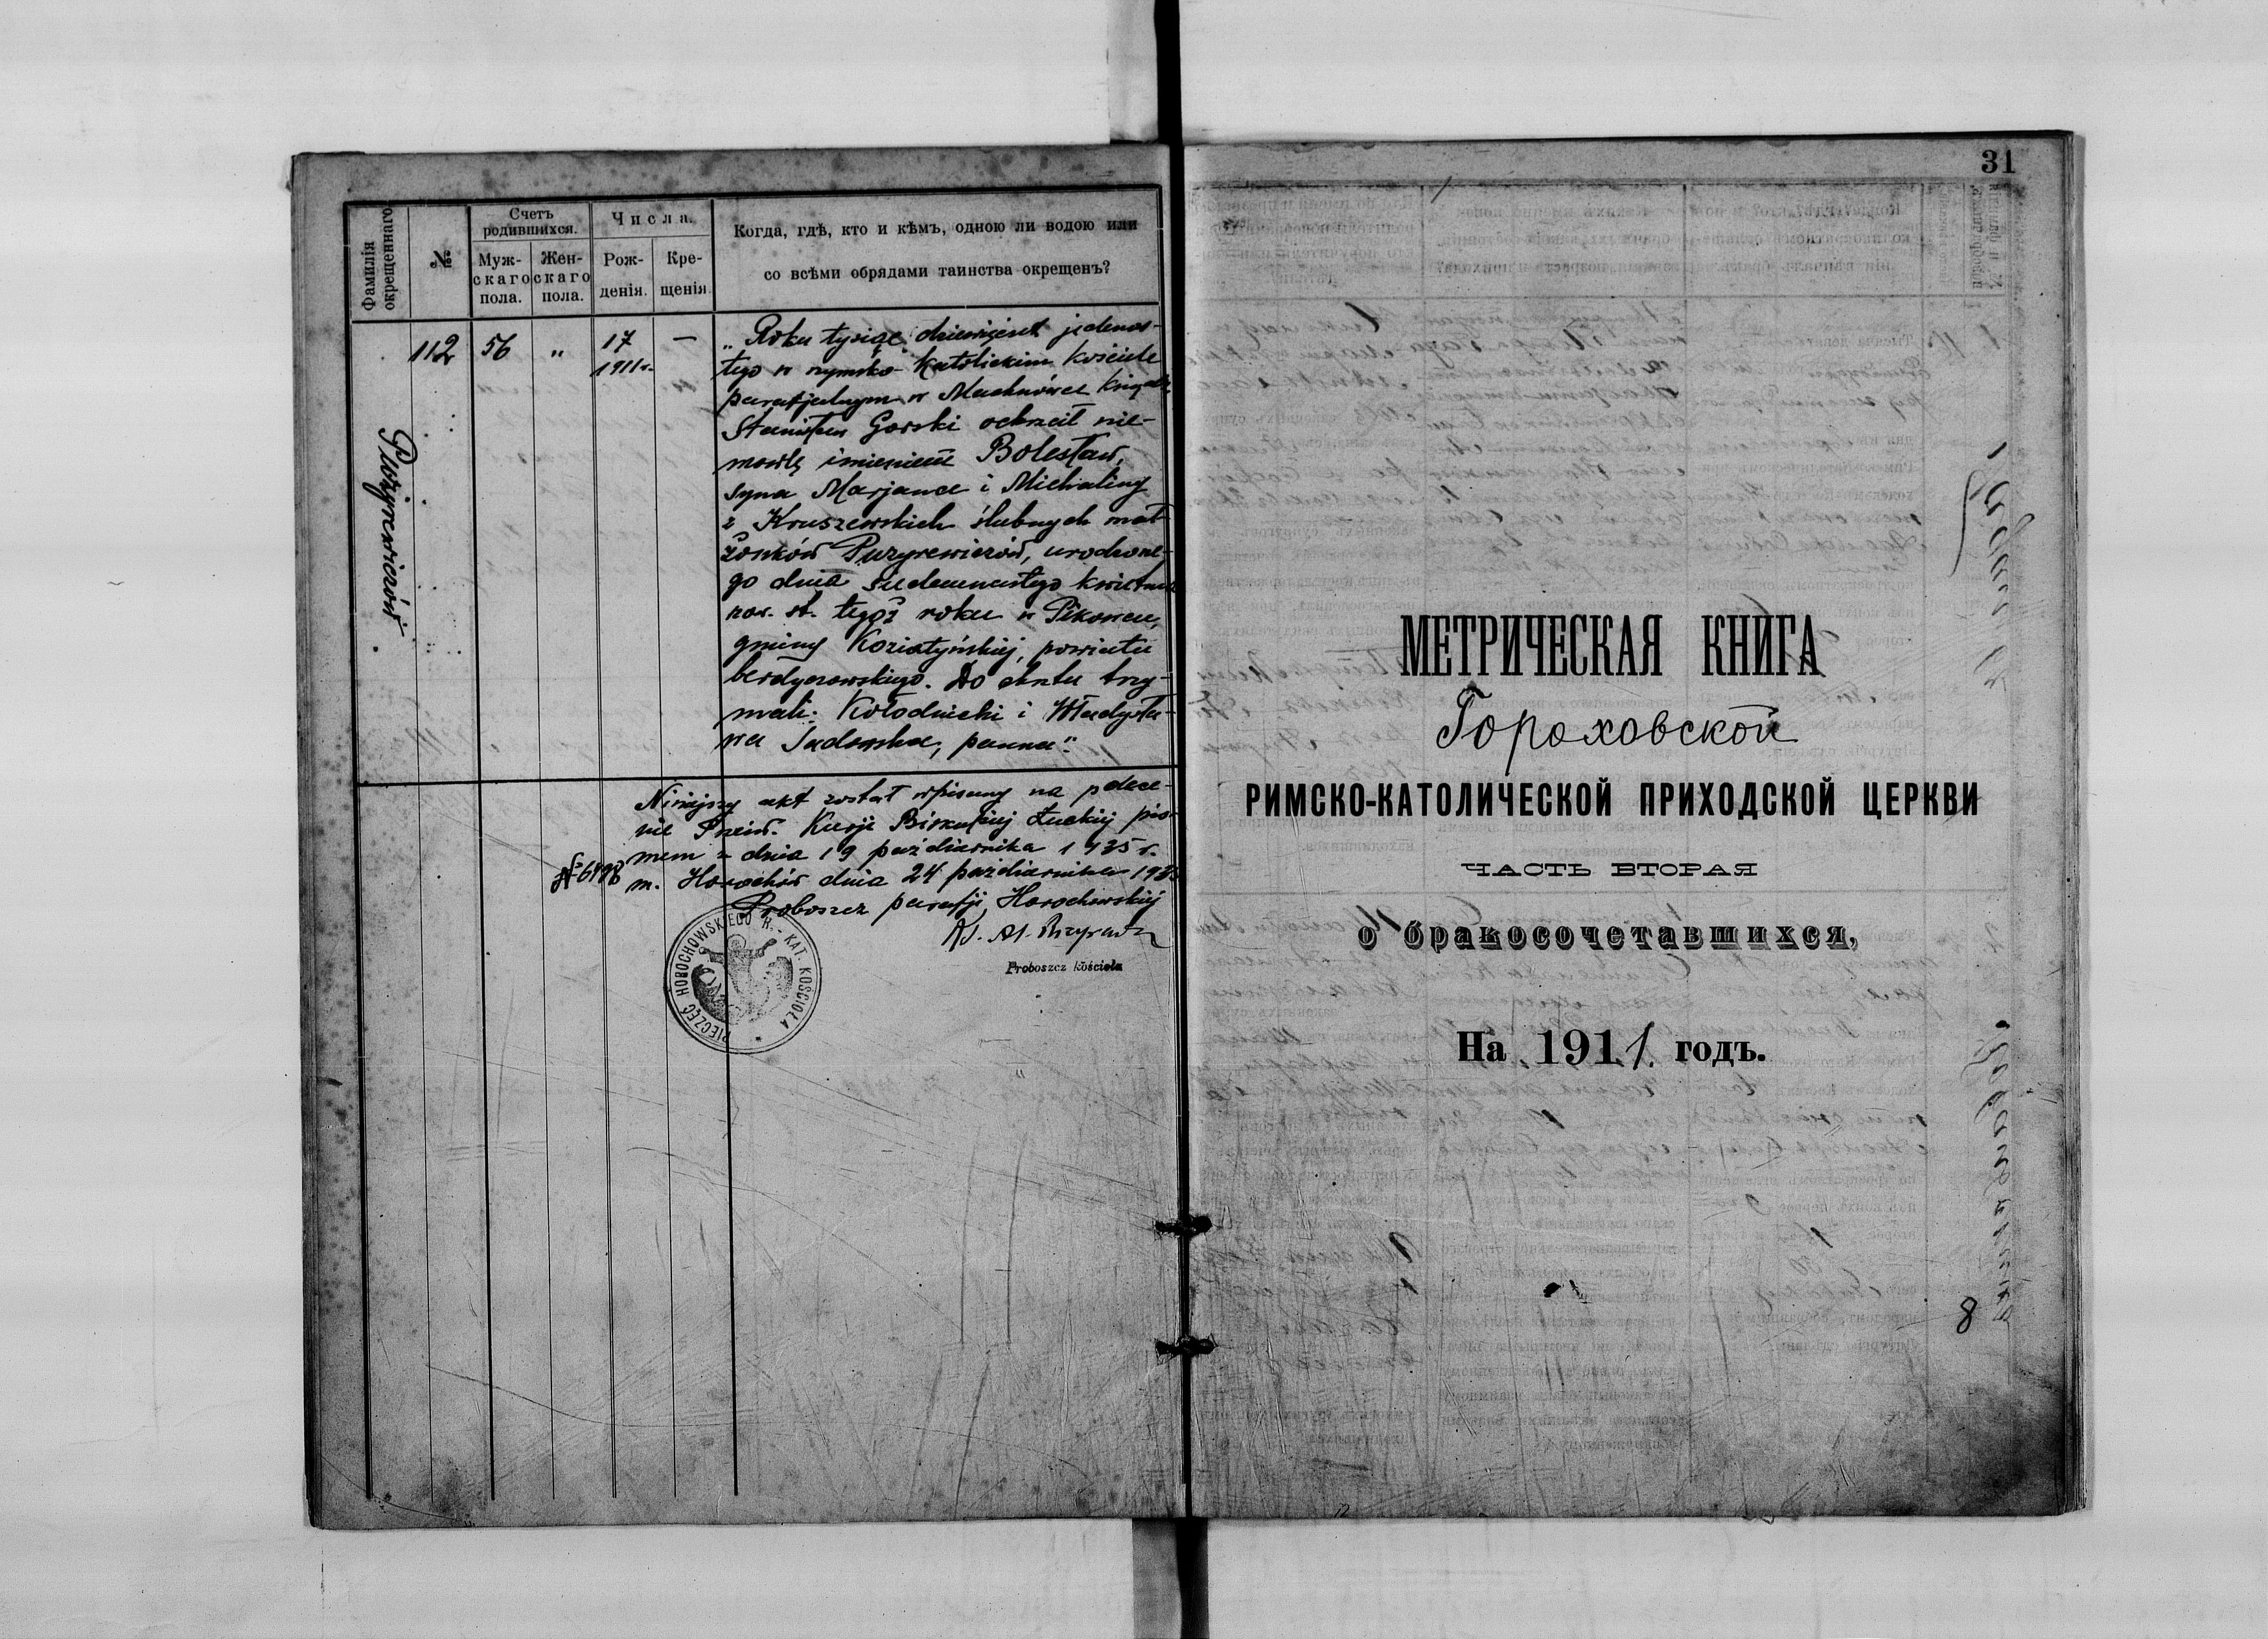 Фамилія окрещеннаго.
№
Счетъ родившихся.
Муж-
скаго
пола.
Жен-
скаго
пола.
Числа.
Рож-
денія.
Кре-
щенія.
Когда, гдѣ, кто и кѣмъ, одною ли водою или
со всѣми обрядами таинства окрещенъ?
Puzyrewiczów
112 56 „ 17 —
1911 r.
„Roku tysiąc dziewięćset jedenas-
tego w rzymsko-katolickim kościele
parafjalnym w Machnówce ksiądz
Stanisław Gorski ochrzcił nie-
mowlę imieniem Bolesław,
syna Marjana i Michaliny
z Kruszewskich ślubnych mał-
żonków Puzyrewiczów, urodzone-
go dnia siedemnastego kwietnia
now. st. tegoż roku w Pikowcu,
gminy Koziatyńskiej, powiatu
berdyczowskiego. Do chrztu trzy-
mali: Kołodnicki i Władysła-
wa Sadowska, panna".
Niniejszy akt został wpisany na polece-
nie Kurji Biskupiej Łuckiej pis-
mem z dnia 19 października 1935 r.
m. Horochów dnia 24 października 1935
Proboszcz parafji Horochowskiej
Proboszcz kościoła
PIECZĘĆ HOROCHOWSKIEGO R.-KAT. KOŚCIOŁA
31
МЕТРИЧЕСКАЯ КНИГА
Гороховской
РИМСКО-КАТОЛИЧЕСКОЙ ПРИХОДСКОЙ ЦЕРКВИ
ЧАСТЬ ВТОРАЯ
о бракосочетавшихся,
На 1911 годъ.
8